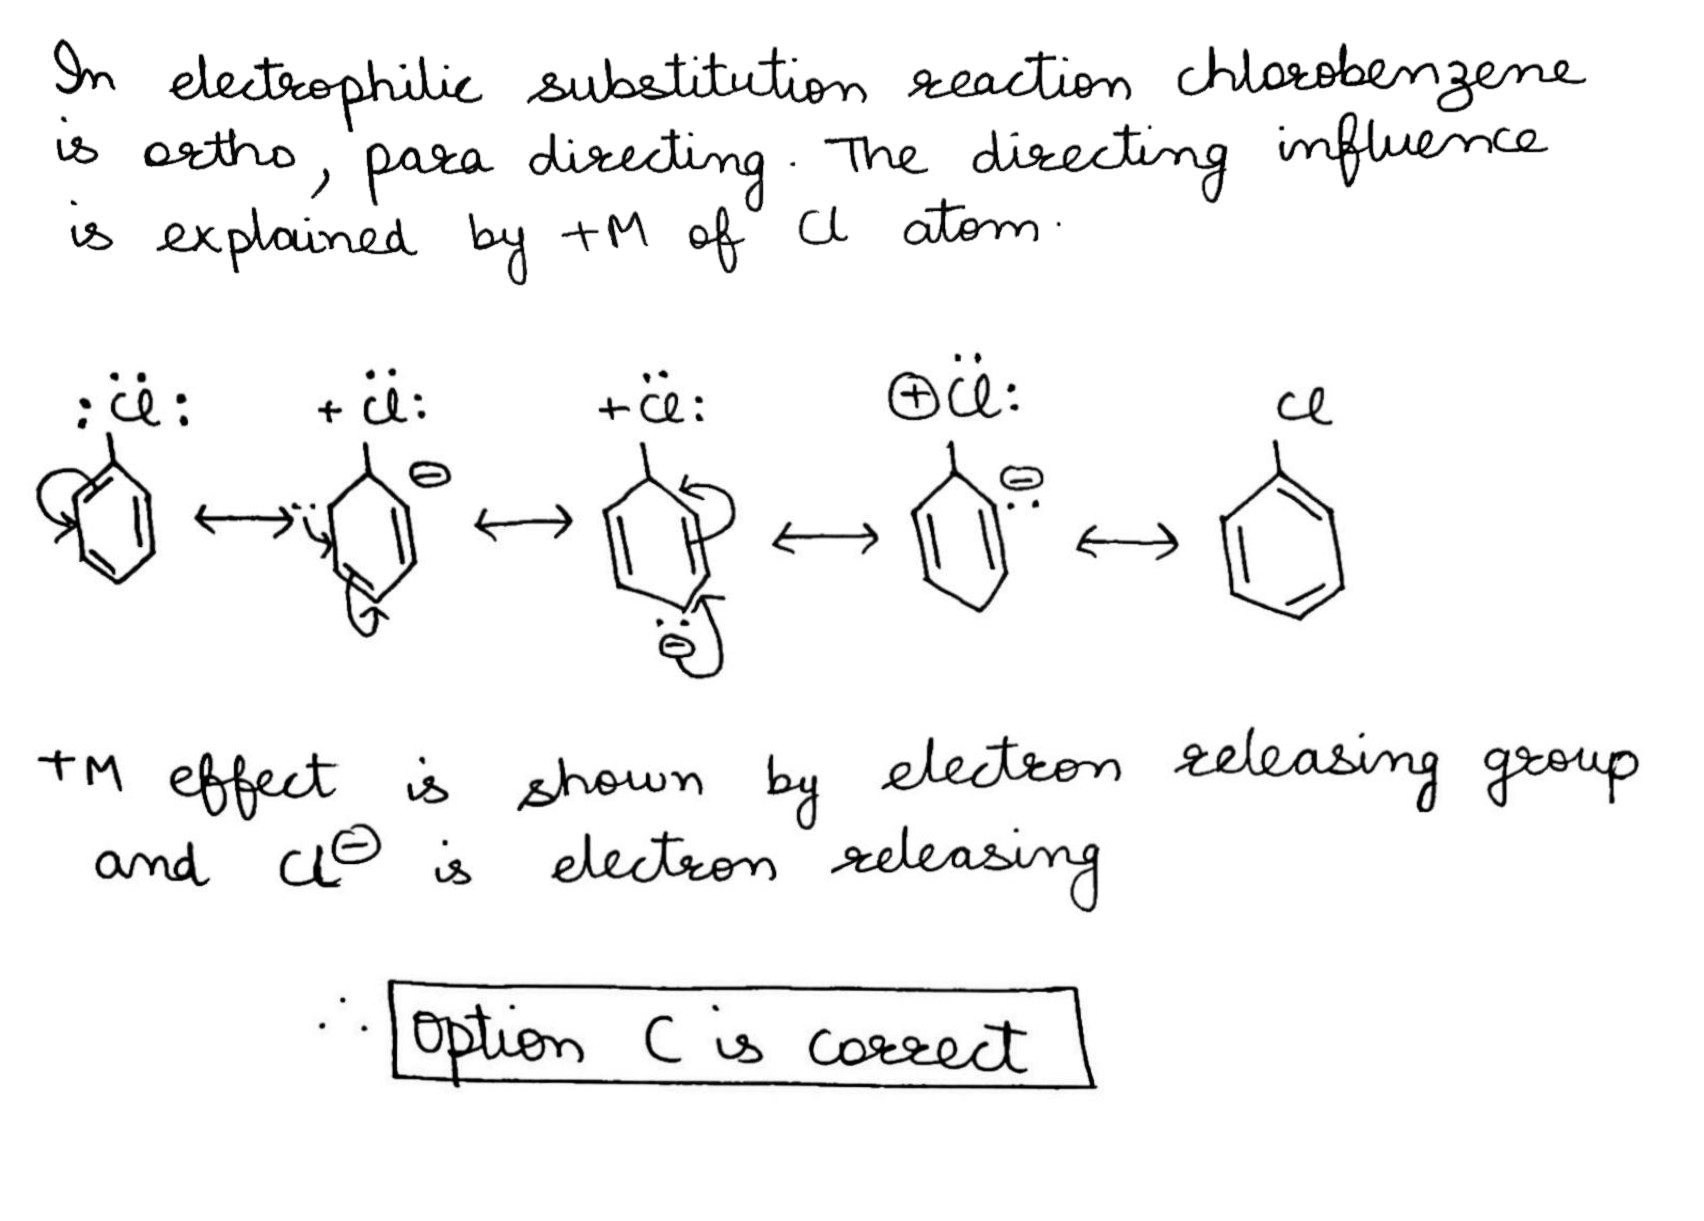 In electrophilic substitution reaction chlorobenzene
is ortho, para directing. The directing influence
is explained by +M of Cl atom.
:C̈l: +C̈l: +C̈l: ⊕C̈l: Cl
⊖ ⊖
⊖
+M effect is shown by electron releasing group
and Cl⊖ is electron releasing
∴ Option C is correct